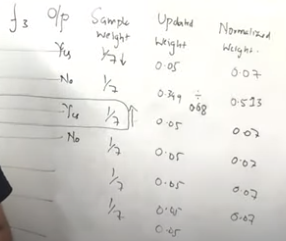 f3 O/p Sample weight Updated Weight Normalized Weight.
Yes 1/7 ↓ 0.05 0.07
No 1/7 0.349 ÷ 0.68 0.513
Yes 1/7 ↑ 0.05 0.07
No 0.05 0.07
1/7 0.05 0.07
1/7 0.05 0.07
0.05